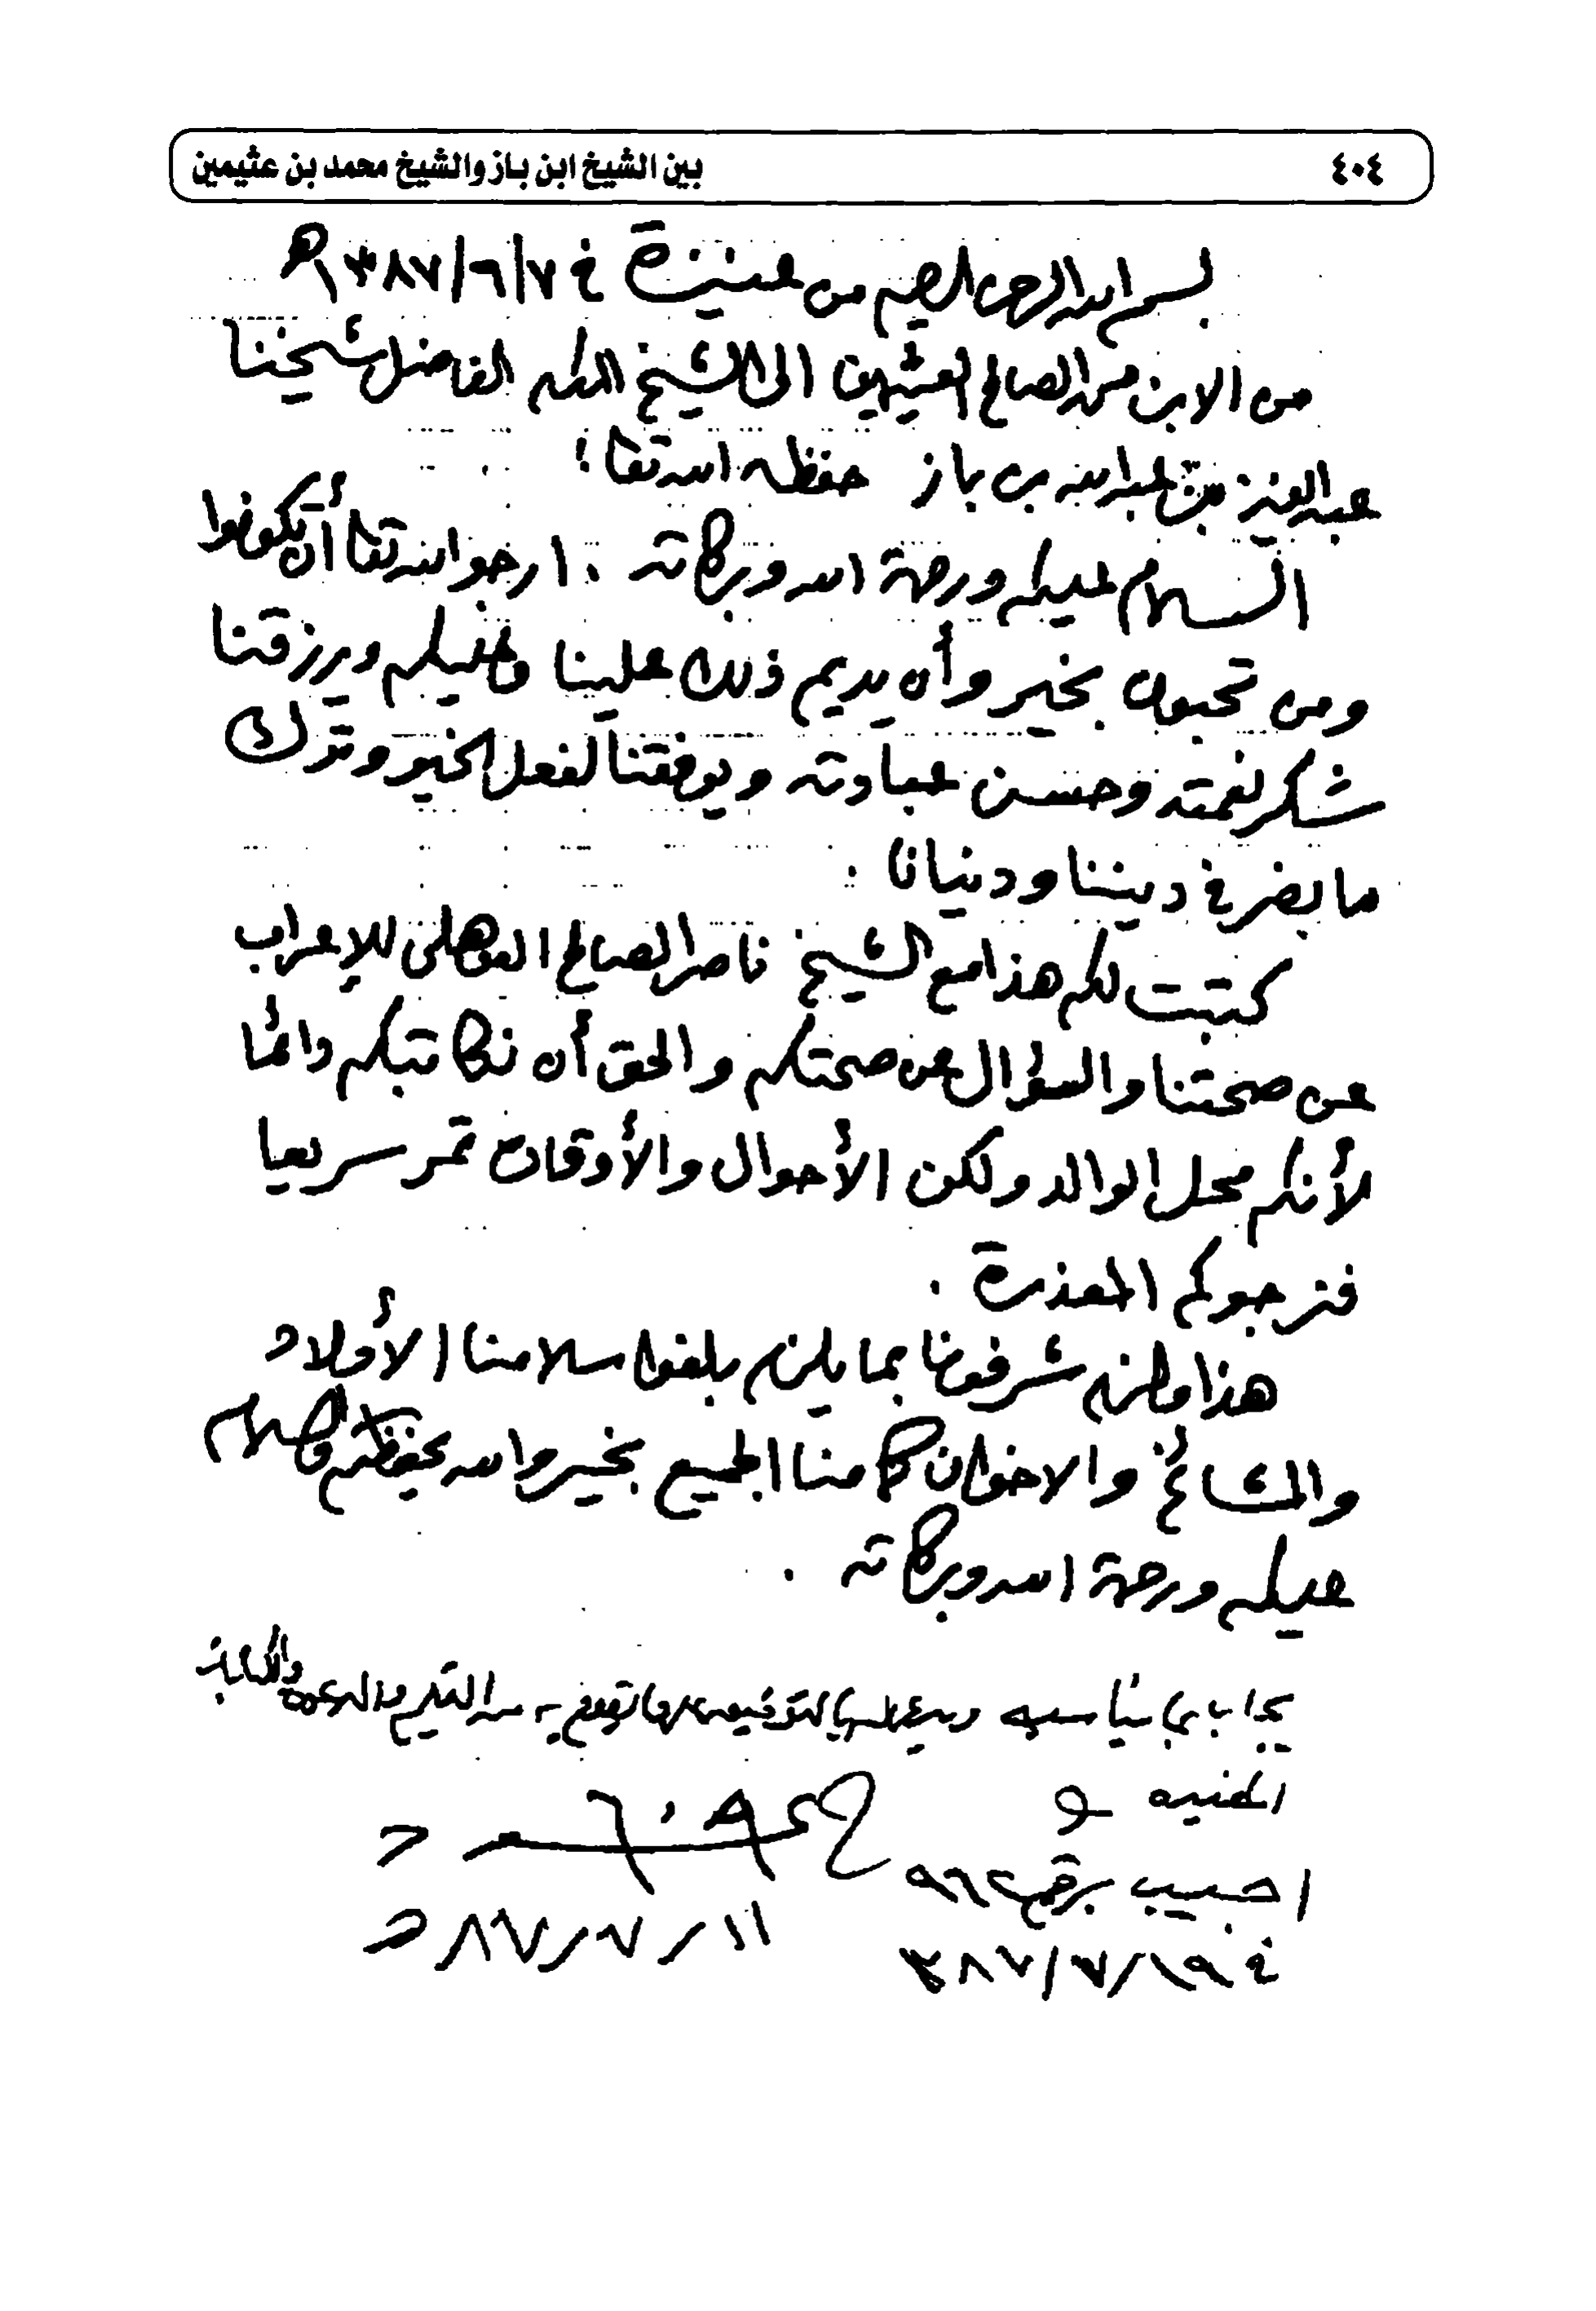 ٤٠٤
بين الشيخ ابن باز والشيخ محمد بن عثيمين
بسم الله الرحمن الرحيم من عنيزة في ١٣٨٧/٦/٧هـ
من الابن محمد الصالح العثيمين الى الشيخ المكرم الفاضل شيخنا
عبد العزيز بن عبد الله بن باز حفظه الله تعالى
السلام عليكم ورحمة الله وبركاته . ارجو الله تعالى أن تكونوا
ومن تحبون بخير وأن يديم ذلك علينا وعليكم ويرزقنا
شكر نعمته وحسن عبادته ويوفقنا لفعل الخير وترك
ما يضر في ديننا ودنيانا .
كتبت لكم هذا مع الشيخ ناصر الصالح للإعراب
عن صحتنا والسؤال عن صحتكم والحق أن نكاتبكم دائما
لأنكم محل الوالد ولكن الأحوال والأوقات تمر سريعا
فنرجوكم المعذرة .
هذا ولكم شرفونا بما يلزم بلغوا سلامنا الأولاد
والمشائخ والاخوان كما منا الجميع بخير والله يحفظكم والسلام
عليكم ورحمة الله وبركاته .
يجاب بما يناسب
اجيب برقم
في ٣٨٧/٧/١٩
٨٧/٧/١١